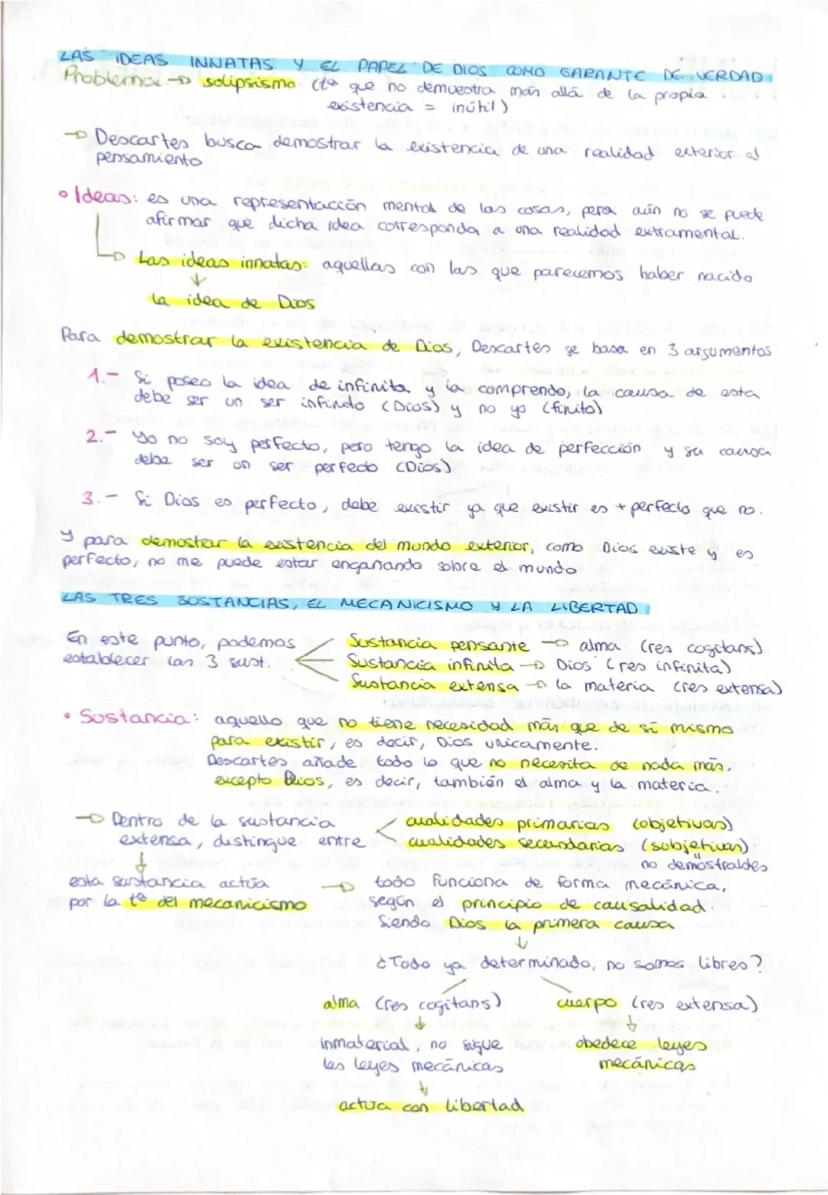 LAS IDEAS INNATAS Y EL PAPEL DE DIOS COMO GARANTE DE VERDAD
Problema → solipsismo (tª que no demuestra más allá de la propia
existencia = inútil)
→ Descartes busca demostrar la existencia de una realidad exterior al
pensamiento
• Ideas: es una representación mental de las cosas, pero aún no se puede
afirmar que dicha idea corresponda a una realidad extramental.
→ Las ideas innatas: aquellas con las que parecemos haber nacido
↓
la idea de Dios
Para demostrar la existencia de Dios, Descartes se basa en 3 argumentos
1.- Si poseo la idea de infinita y la comprendo, la causa de esta
debe ser un ser infinito (Dios) y no yo (finito)
2.- Yo no soy perfecto, pero tengo la idea de perfección y su causa
debe ser un ser perfecto (Dios)
3.- Si Dios es perfecto, debe existir ya que existir es + perfecto que no.
Y para demostrar la existencia del mundo exterior, como Dios existe y es
perfecto, no me puede estar engañando sobre el mundo
LAS TRES SUSTANCIAS, EL MECANICISMO Y LA LIBERTAD
En este punto, podemos
establecer las 3 sust.
Sustancia pensante → alma (res cogitans)
Sustancia infinita → Dios (res infinita)
Sustancia extensa → la materia (res extensa)
• Sustancia: aquello que no tiene necesidad más que de sí mismo
para existir, es decir, Dios unicamente.
Descartes añade todo lo que no necesita de nada más,
excepto Dios, es decir, también el alma y la materia.
→ Dentro de la sustancia
extensa, distingue entre
cualidades primarias (objetivas)
cualidades secundarias (subjetivas)
no demostrables
↓
esta sustancia actúa
por la tª del mecanicismo
→ todo funciona de forma mecánica,
según el principio de causalidad.
Siendo Dios la primera causa
↓
¿Todo ya determinado, no somos libres?
alma (res cogitans) cuerpo (res extensa)
↓ ↓
inmaterial, no sigue obedece leyes
las leyes mecánicas mecánicas
↓
actúa con libertad